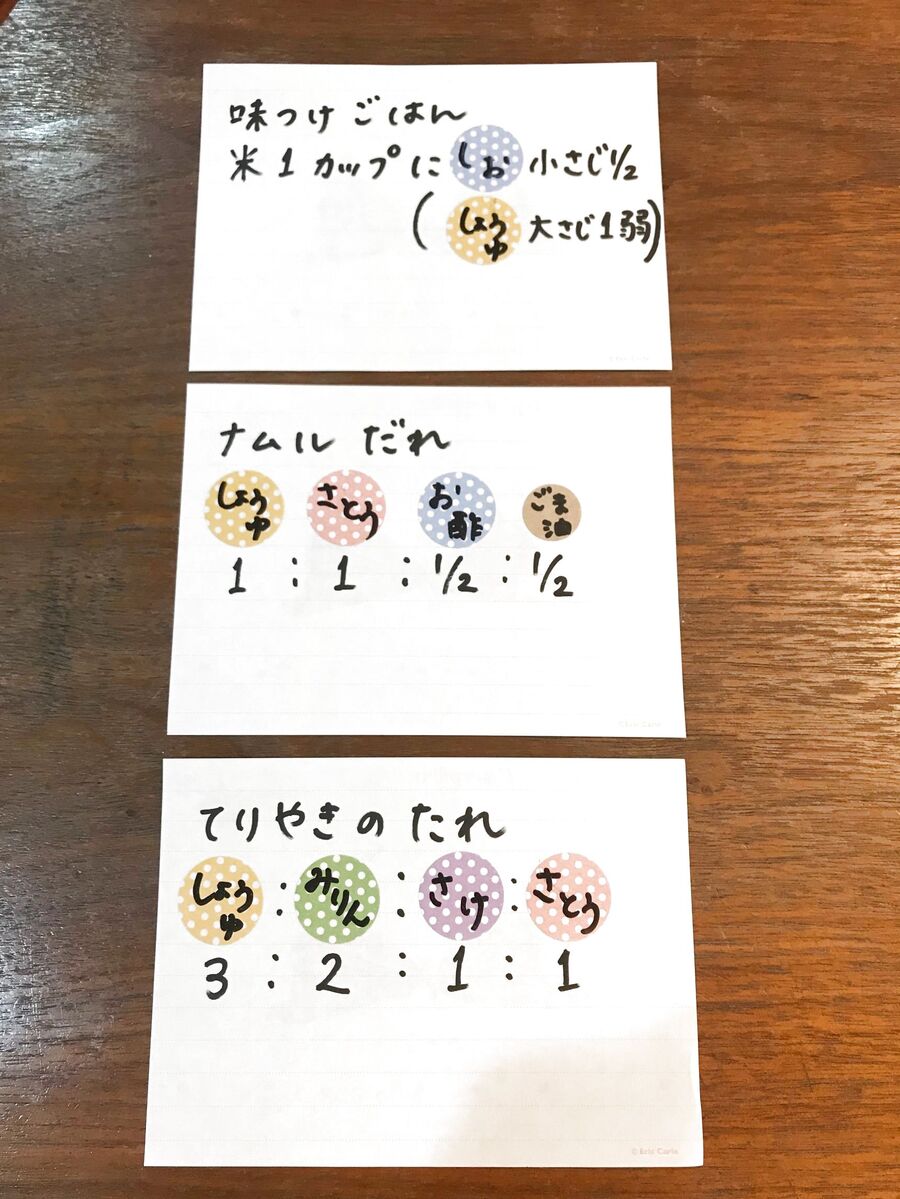 味つけごはん
米1カップに しお 小さじ1/2
(しょうゆ 大さじ1弱)
ナムルだれ
しょうゆ さとう お酢 ごま油
1 : 1 : 1/2 : 1/2
てりやきのたれ
しょうゆ : みりん : さけ : さとう
3 : 2 : 1 : 1
© Eric Carle